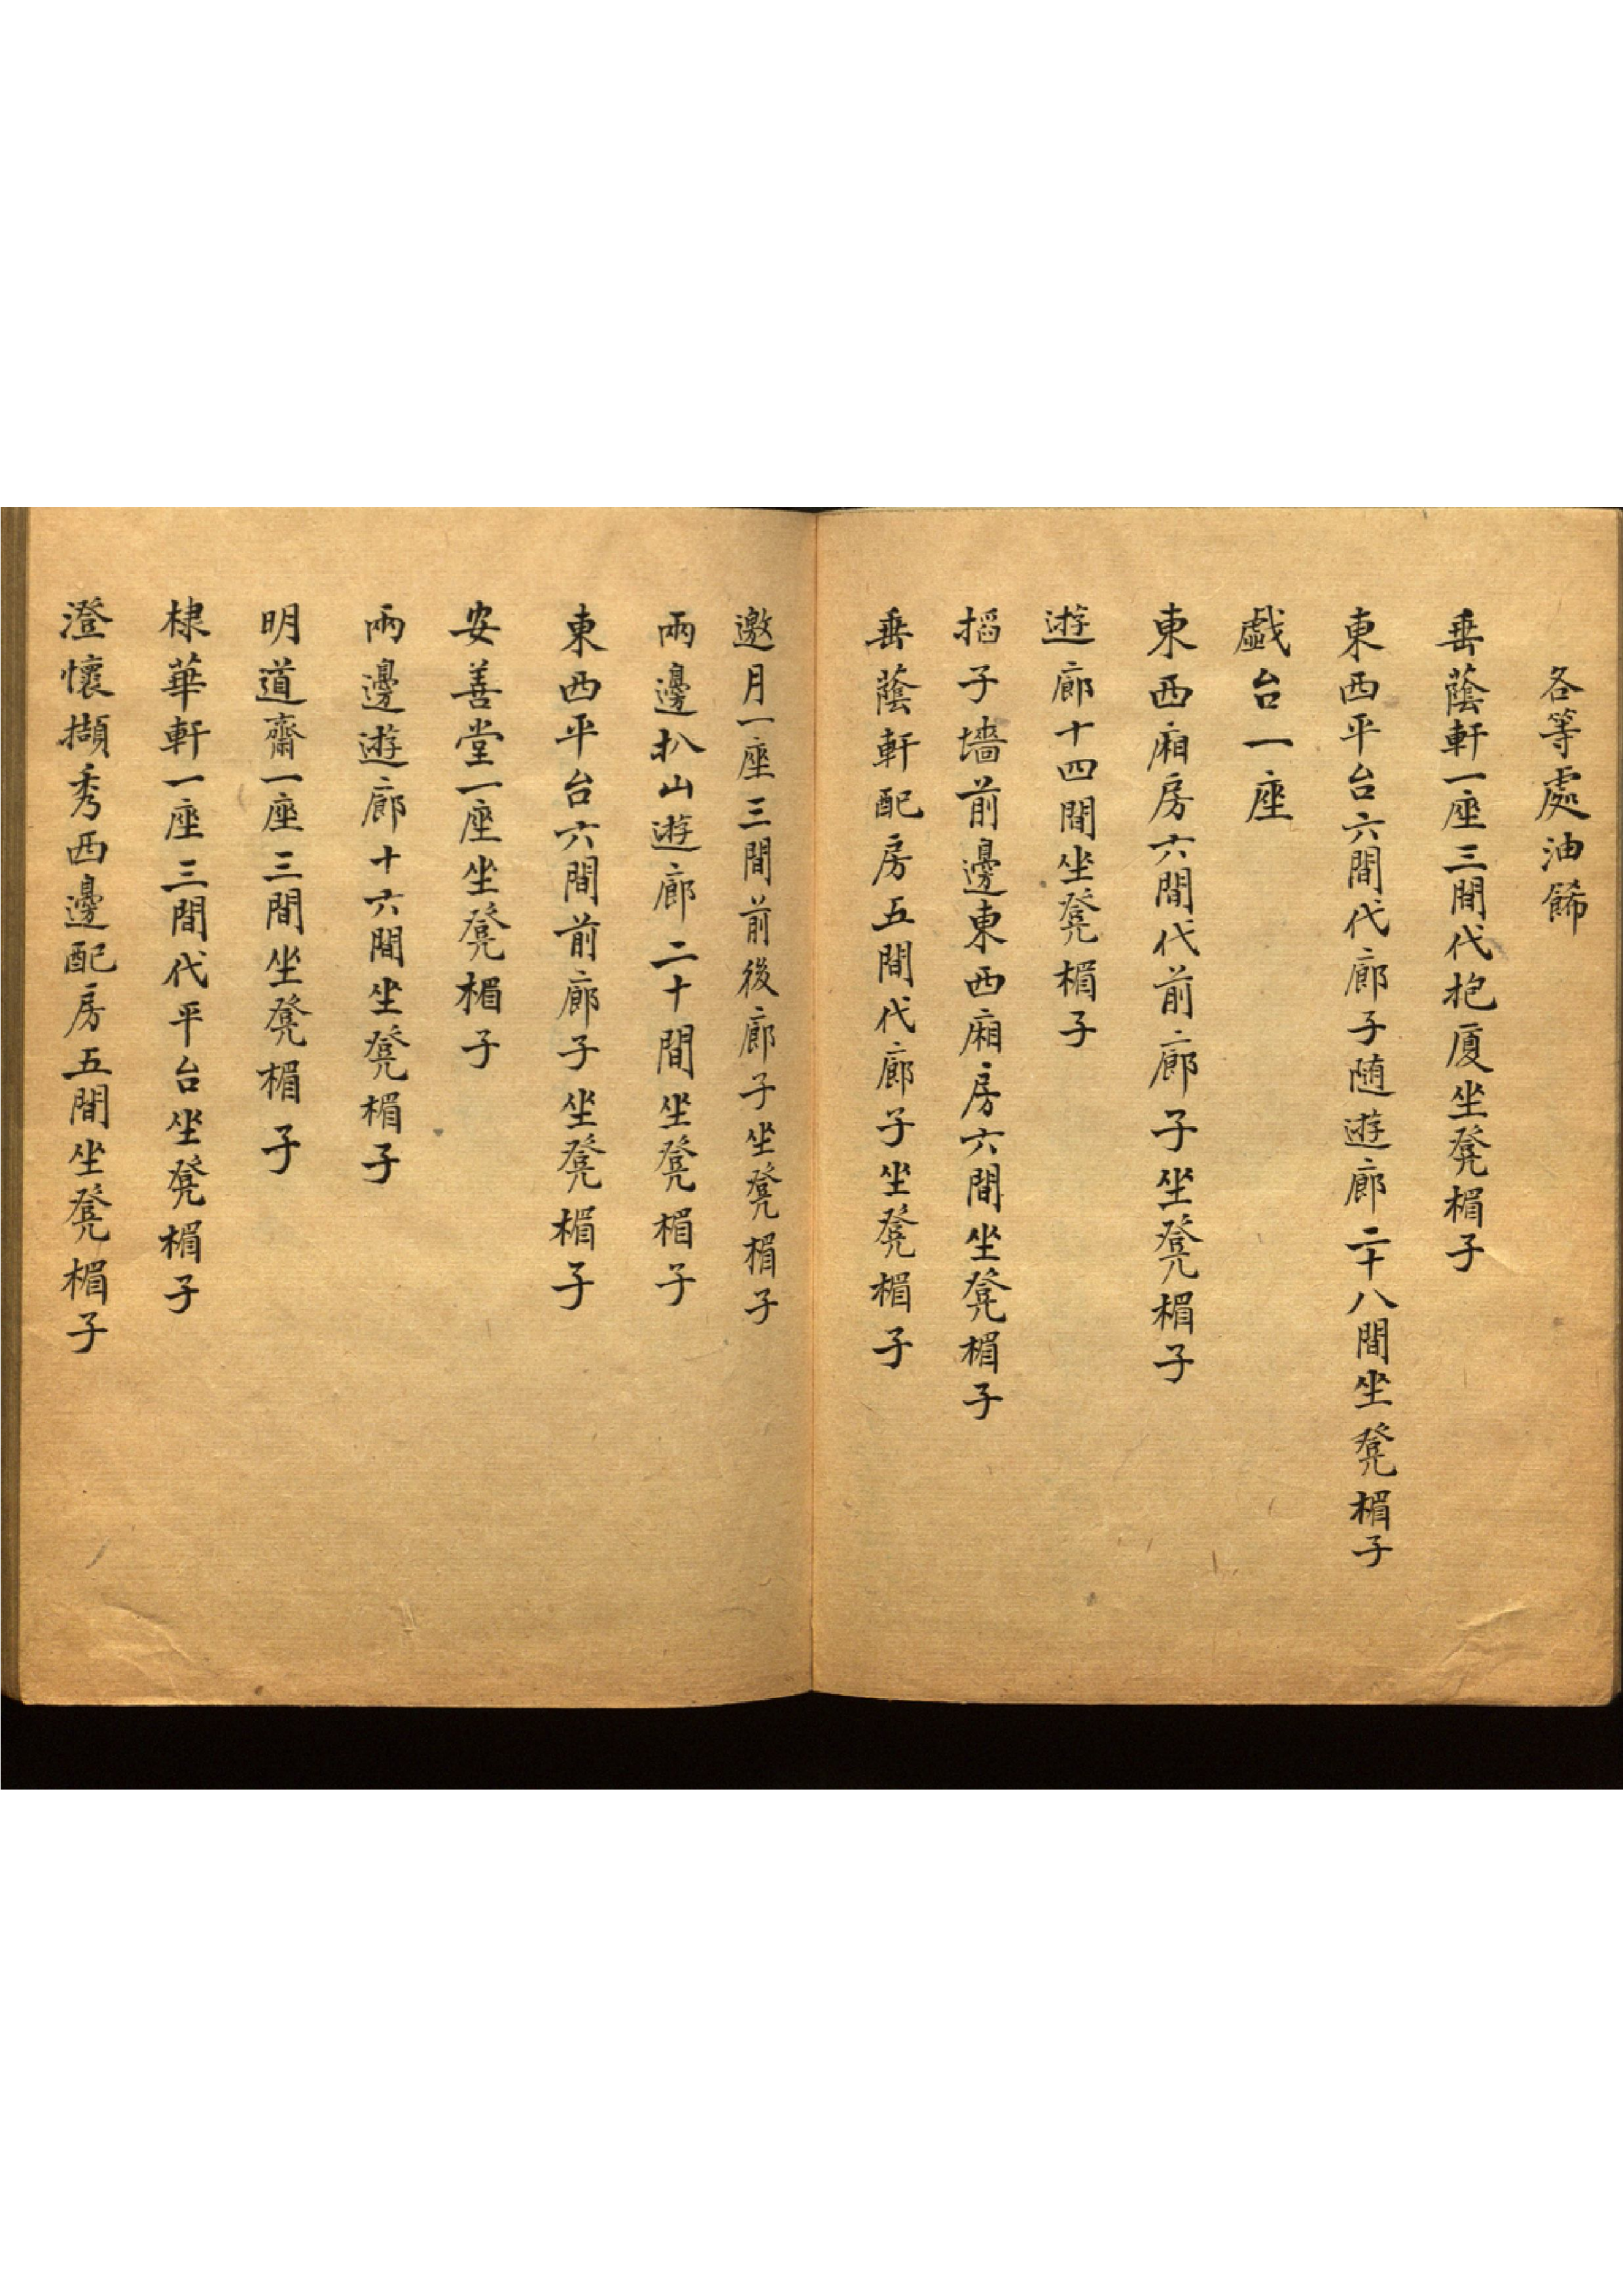 各等處油飾
垂蔭軒一座三間代抱廈坐凳楣子
東西平台六間代廊子随遊廊二十八間坐凳楣子
戯台一座
東西廂房六間代前廊子坐凳楣子
遊廊十四間坐凳楣子
搯子墻前邊東西廂房六間坐凳楣子
垂蔭軒配房五間代廊子坐凳楣子
邀月一座三間前後廊子坐凳楣子
兩邊扒山遊廊二十間坐凳楣子
東西平台六間前廊子坐凳楣子
安善堂一座坐凳楣子
兩邊遊廊十六間坐凳楣子
明道齋一座三間坐凳楣子
棣華軒一座三間代平台坐凳楣子
澄懷擷秀西邊配房五間坐凳楣子